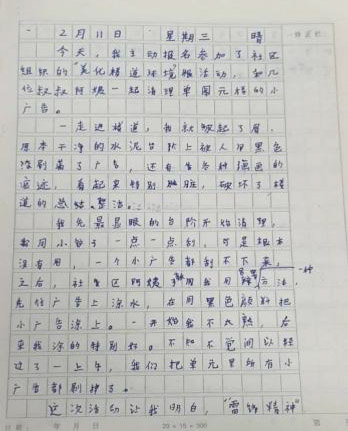 2月11日 星期三 晴
今天,我主动报名参加了社区
组织的“美化楼道环境”服活动,和几
位叔叔阿姨一起清理单园元楼的小
广告。
一走进楼道,我就皱起了眉,
原本干净的水泥台阶上被人用黑色
漆刷满了广告,还有各种画的
痕迹,看起来特别,破坏了楼
道的总结整洁。
我先最显眼的台阶开始清理,
我用小铲子一点一点刮,可是根本
没有用,一个小广告都刮不下来,
之后,社区阿姨用我用方法,一种
先往广告上涂水,在用黑色颜料把
小广告涂上。一开始我不太熟,后
来我涂的特别好。不知不觉间以经
过了一上午,我们把单元里所有小
广告都刷掉了。
这次活动让我明白,“雷锋精神”
年 月 日
20×15=300